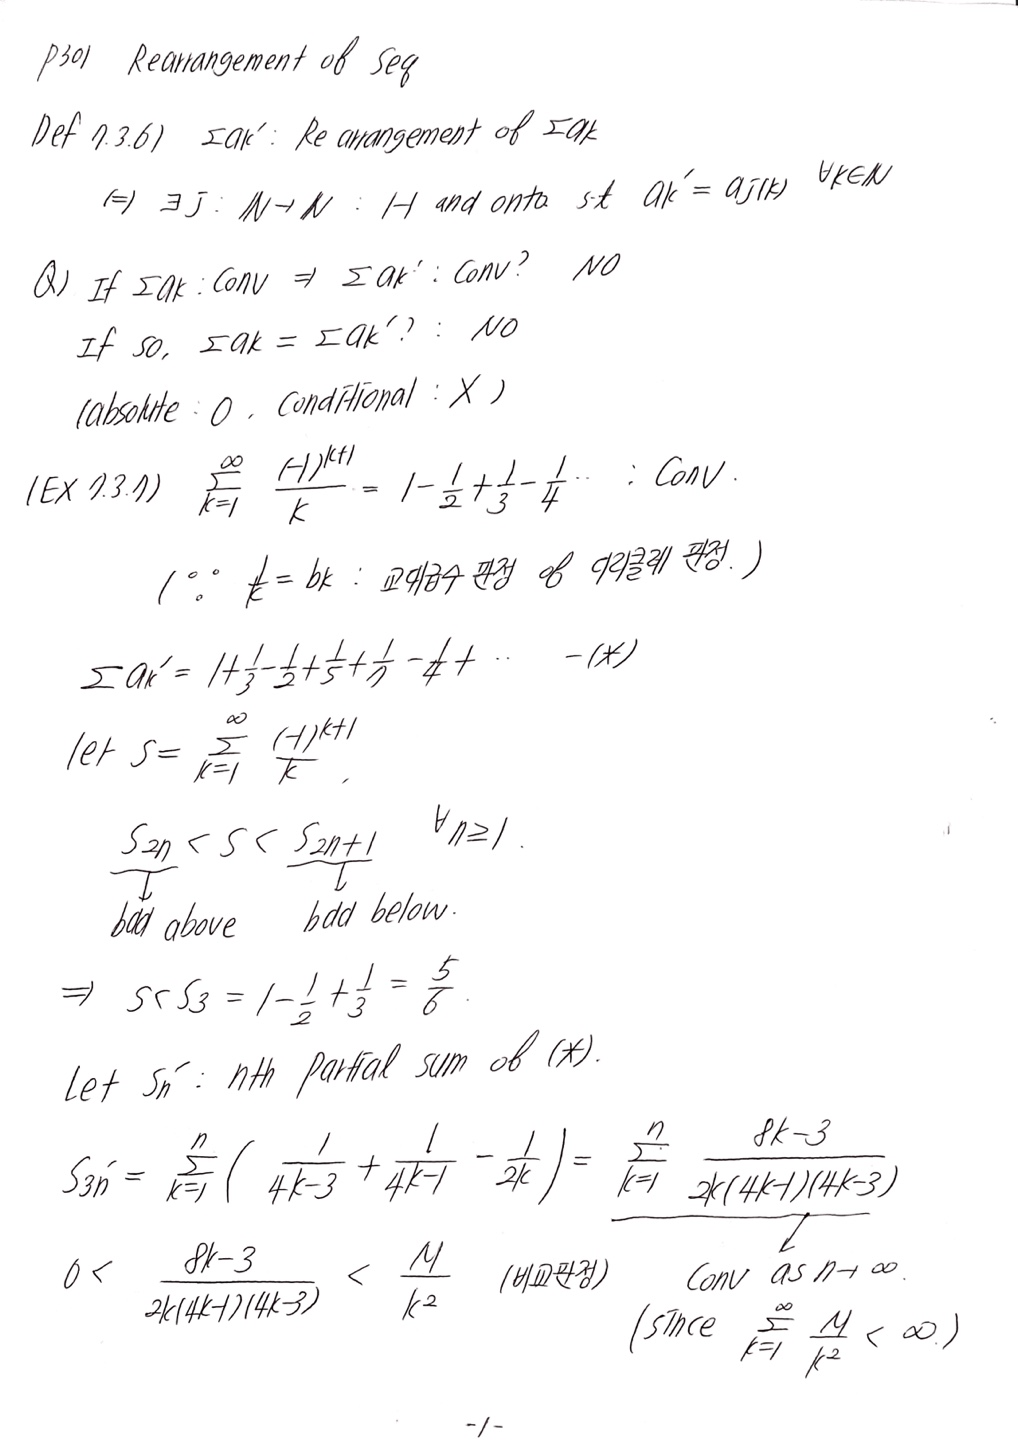 P301 Rearrangement of Seq
Def 7.3.6) Σak′ : Rearrangement of Σak
⇔ ∃j : ℕ→ℕ : 1-1 and onto s.t ak′ = aj(k) ∀k∈ℕ
Q) If Σak : Conv ⇒ Σak′ : Conv? NO
If so, Σak = Σak′? : NO
(absolute : O, Conditional : X)
(EX 7.3.7) ∑_{k=1}^{∞} (-1)^{k+1}/k = 1 - 1/2 + 1/3 - 1/4 ·· : Conv.
(∵ 1/k = bk : 교대급수 판정 of 디리클레 판정.)
Σak′ = 1 + 1/3 - 1/2 + 1/5 + 1/7 - 1/4 + ·· -(*)
let S = ∑_{k=1}^{∞} (-1)^{k+1}/k,
S2n < S < S2n+1 ∀n≥1.
bdd above bdd below.
⇒ S < S3 = 1 - 1/2 + 1/3 = 5/6.
Let Sn′ : nth partial sum of (*).
S3n′ = ∑_{k=1}^{n} ( 1/(4k-3) + 1/(4k-1) - 1/2k ) = ∑_{k=1}^{n} (8k-3)/(2k(4k-1)(4k-3))
0 < (8k-3)/(2k(4k-1)(4k-3)) < M/k² (비교판정) Conv as n→∞.
(since ∑_{k=1}^{∞} M/k² < ∞.)
-1-